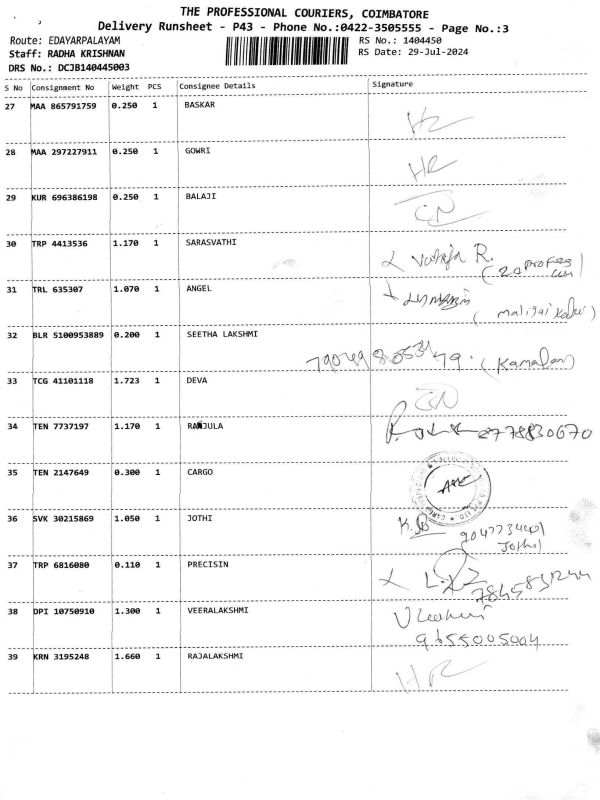 THE PROFESSIONAL COURIERS, COIMBATORE
Delivery Runsheet - P43 - Phone No.:0422-3505555 - Page No.:3
Route: EDAYARPALAYAM RS No.: 1404450
Staff: RADHA KRISHNAN RS Date: 29-Jul-2024
DRS No.: DCJB140445003
S No Consignment No Weight PCS Consignee Details Signature
27 MAA 865791759 0.250 1 BASKAR
HR
28 MAA 297227911 0.250 1 GOWRI
HR
29 KUR 696386198 0.250 1 BALAJI
30 TRP 4413536 1.170 1 SARASVATHI
R.
31 TRL 635307 1.070 1 ANGEL
(maligai
32 BLR 5100953889 0.200 1 SEETHA LAKSHMI
33 TCG 41101118 1.723 1 DEVA
34 TEN 7737197 1.170 1 RANJULA
35 TEN 2147649 0.300 1 CARGO
36 SVK 30215869 1.050 1 JOTHI
Jothi
37 TRP 6816080 0.110 1 PRECISIN
38 DPI 10750910 1.300 1 VEERALAKSHMI
9655005004
39 KRN 3195248 1.660 1 RAJALAKSHMI
HR